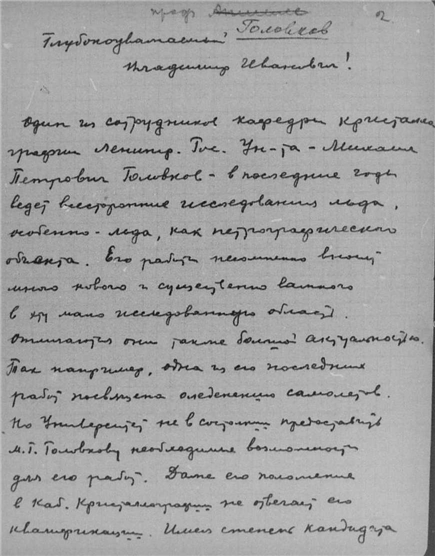 проф. 2.
Головков
Глубокоуважаемый
Владимир Иванович!
Один из сотрудников кафедры Кристалло
графии Ленингр. Гос. Ун-та – Михаил
Петрович Головков – в последние годы
ведет всесторонние исследования льда,
особенно – льда, как петрографического
объекта. Его работы несомненно вносят
много нового и существенно важного
в эту мало исследованную область.
Отличаются они также большой актуальностью.
Так например, одна из его последних
работ посвящена оледенению самолетов.
Но Университет не в состоянии предоставить
М.П. Головкову необходимые возможности
для его работ. Даже его положение
в Каб. Кристаллографии не отвечает его
квалификации. Имея степень кандидата